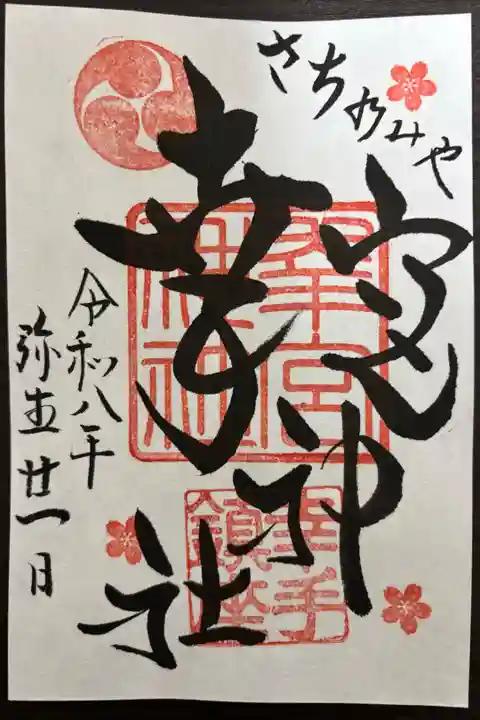 さち乃みや
幸宮神社
幸宮
神社
幸手
鎮座
令和八年
弥生廿一日